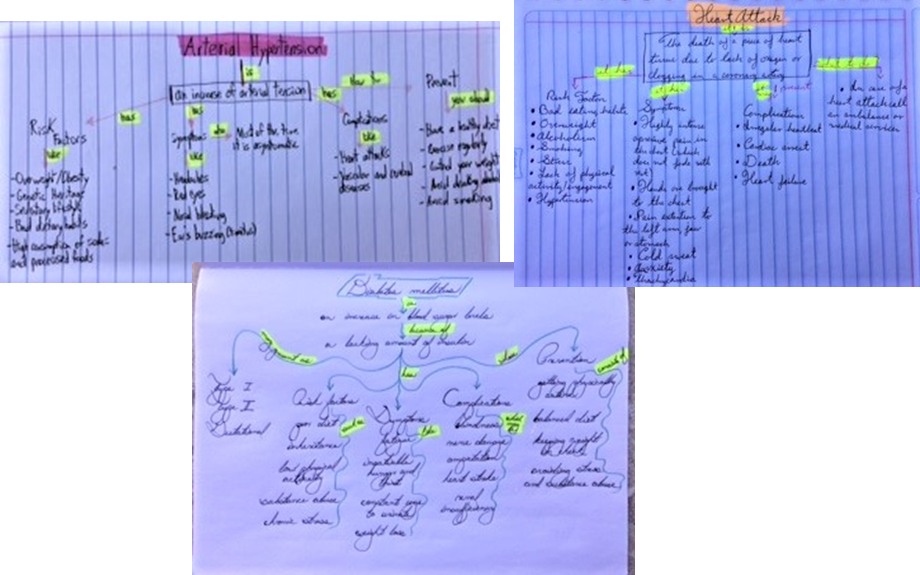 Arterial Hypertension
is
an increase of arterial tension
has
has
has
How to
Prevent
you should
Risk
Factors
like
- Overweight/Obesity
- Genetic Heritage
- Sedentary lifestyle
- Bad dietary habits
- High consumption of
and processed foods
Symptoms
Most of the time
it is asymptomatic
like
- Headaches
- Red eyes
- Nasal bleeding
- Ears buzzing
Complications
like
- Heart attacks
- Vascular and
diseases
- Have a healthy diet
- Exercise regularly
- Control your weight
- Avoid drinking
- Avoid smoking
Heart Attack
The death of a piece of heart
tissue due to lack of oxygen or
clogging in a coronary artery
Risk Factors
• Bad eating habits
• Overweight
• Alcoholism
• Smoking
• Stress
• Lack of physical
activity/engagement
• Hypertension
Symptoms
• Highly intense
pain in
the chest (which
does not fade with
rest)
• Hands are brought
to the chest
• Pain extention to
the left arm, jaw
or stomach
• Cold sweat
• Anxiety
• Thachycardia
Complications
• Irregular heartbeat
• Cardiac arrest
• Death
• Heart failure
• In case of a
heart attack call
an ambulance or
medical services
Diabetes mellitus
is
an increase in blood sugar levels
because of
a lacking amount of insulin
has
Type I
Type II
Gestational
Risk factors
such as
poor diet
inheritance
low physical
activity
substance abuse
chronic stress
Symptoms
like
fatigue
hunger and
thirst
constant urge
to urinate
weight loss
Complications
blindness
nerve damage
amputation
heart stroke
renal
insufficiency
Prevention
consists of
getting physically
active
balanced diet
keeping weight
avoiding stress
and substance abuse